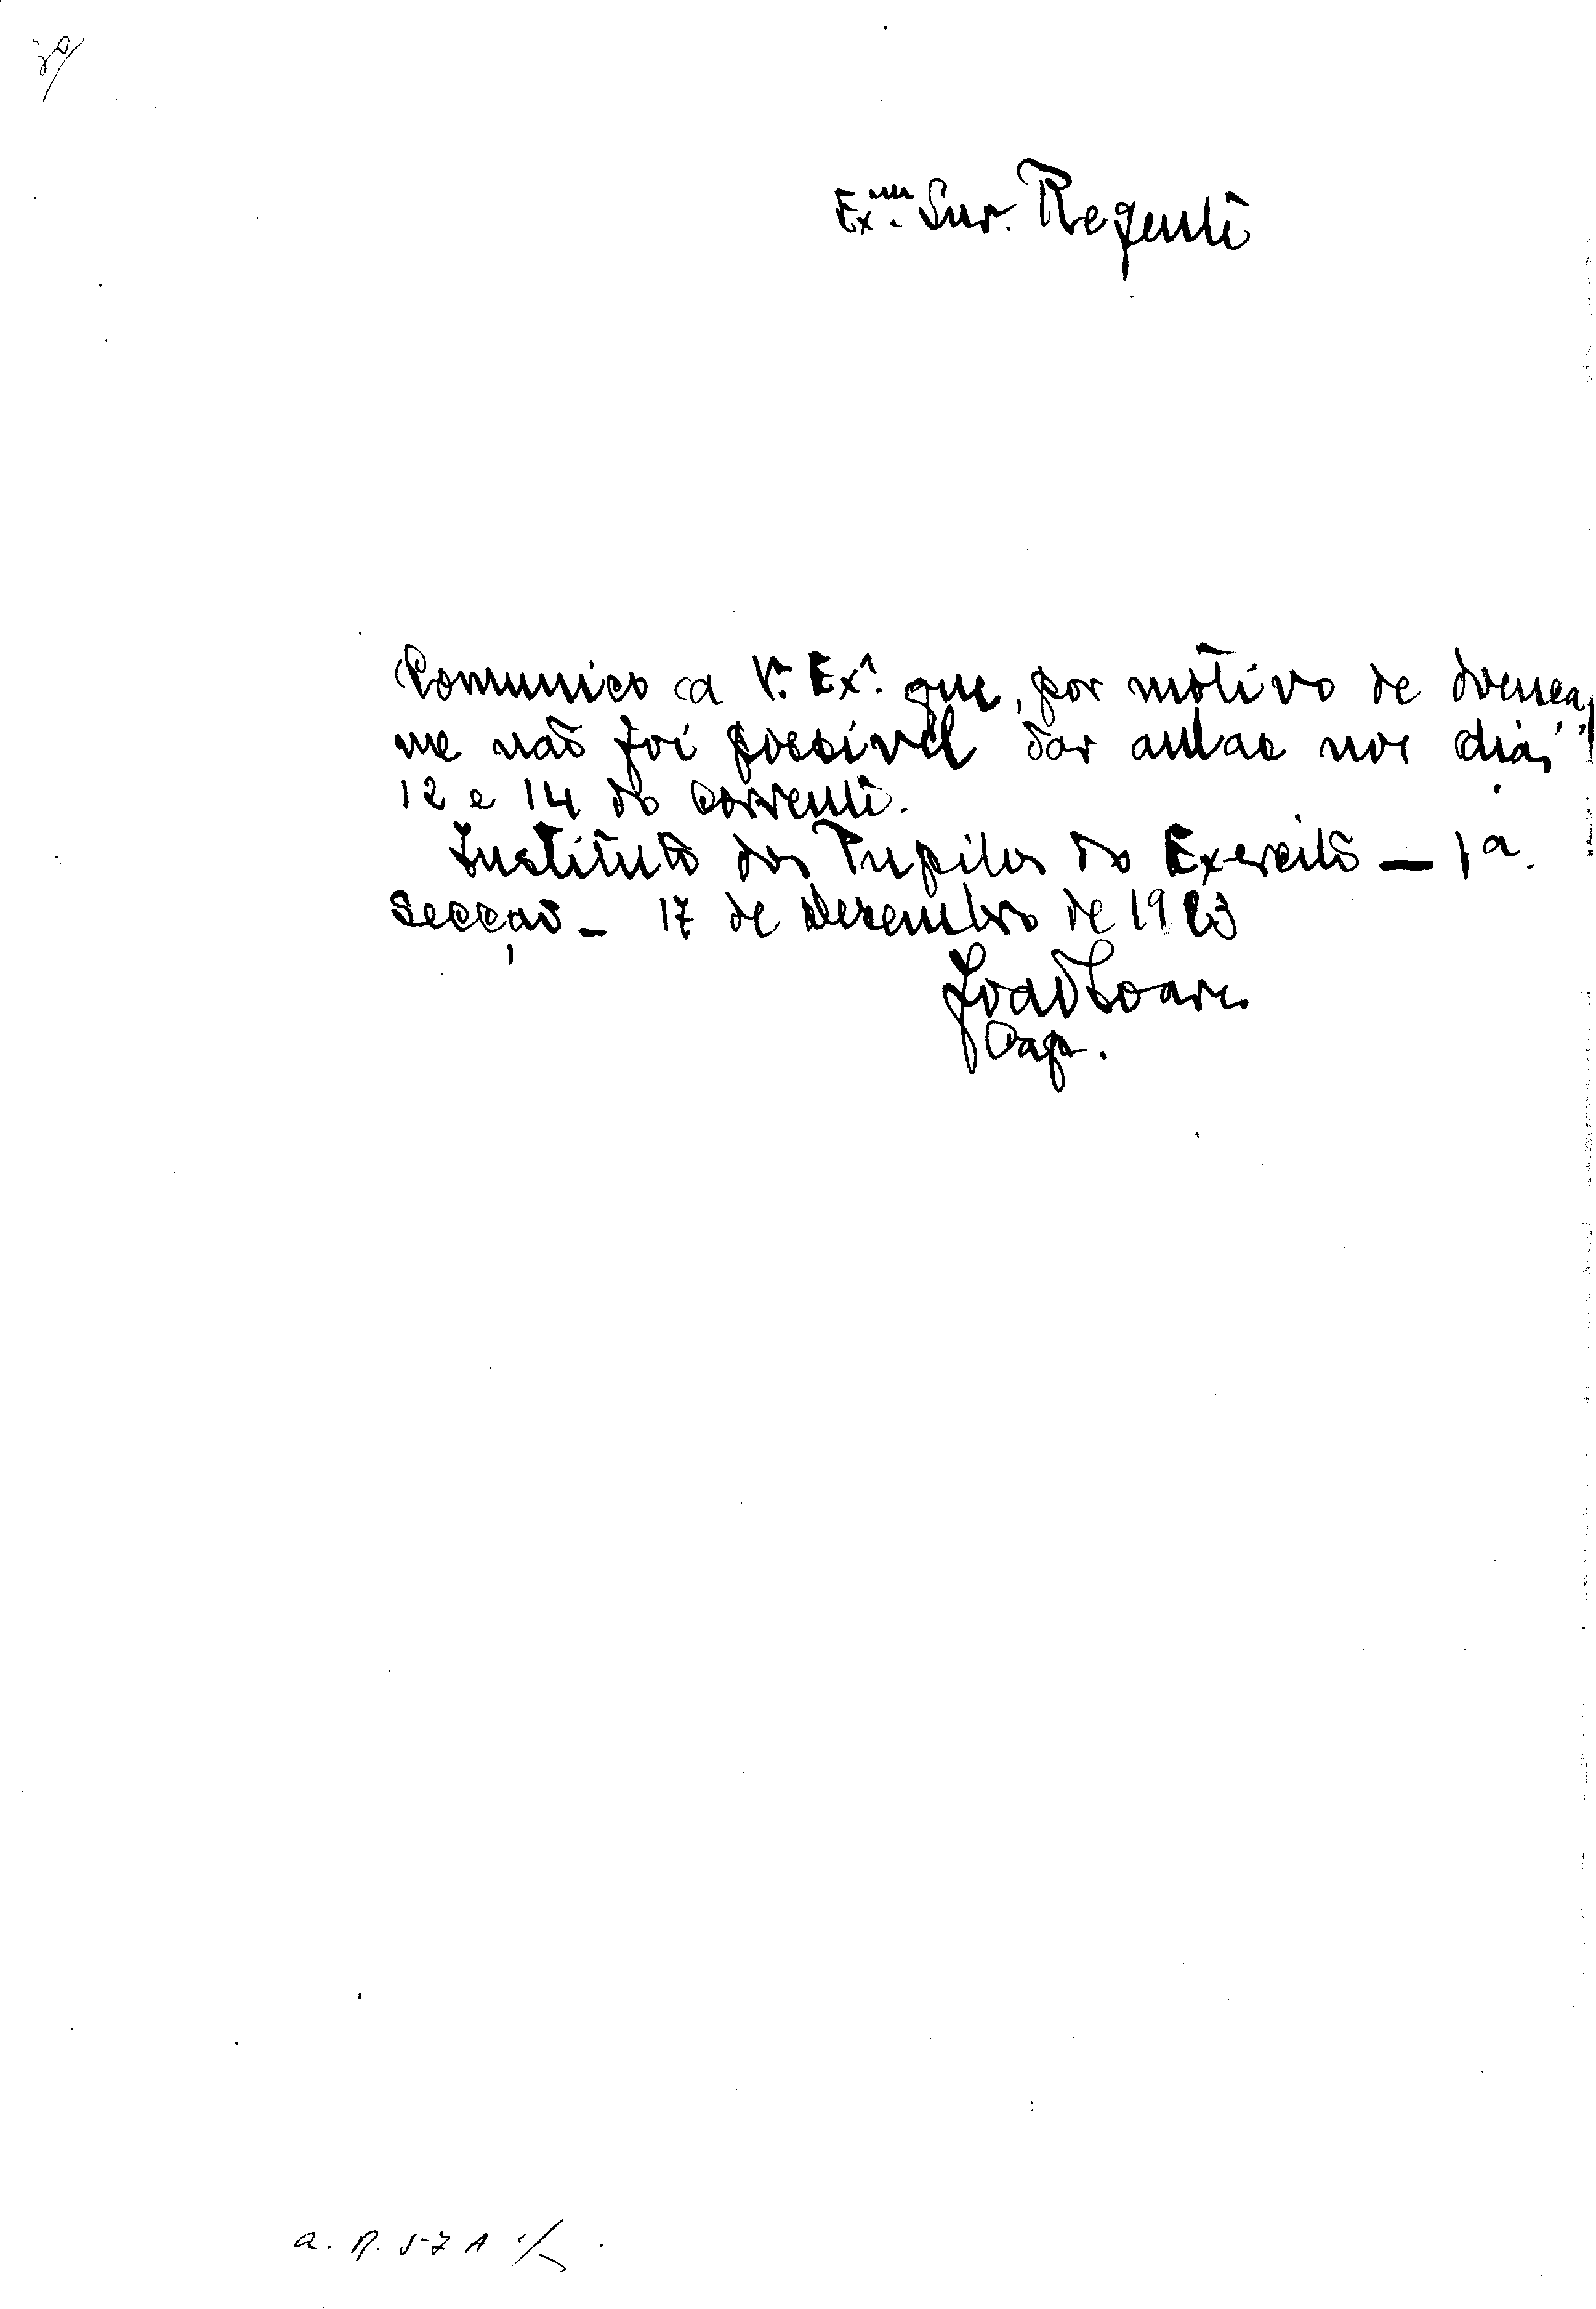 30
Ex.mo Snr. Regente
Comunico a V. Exª. que, por motivo de doença,
me não foi possivel dar aulas nos dias
12 e 14 do corrente.
Instituto dos Pupilos do Exercito — 1ª.
Secção - 17 de Dezembro de 1923
João Soares
Cap.